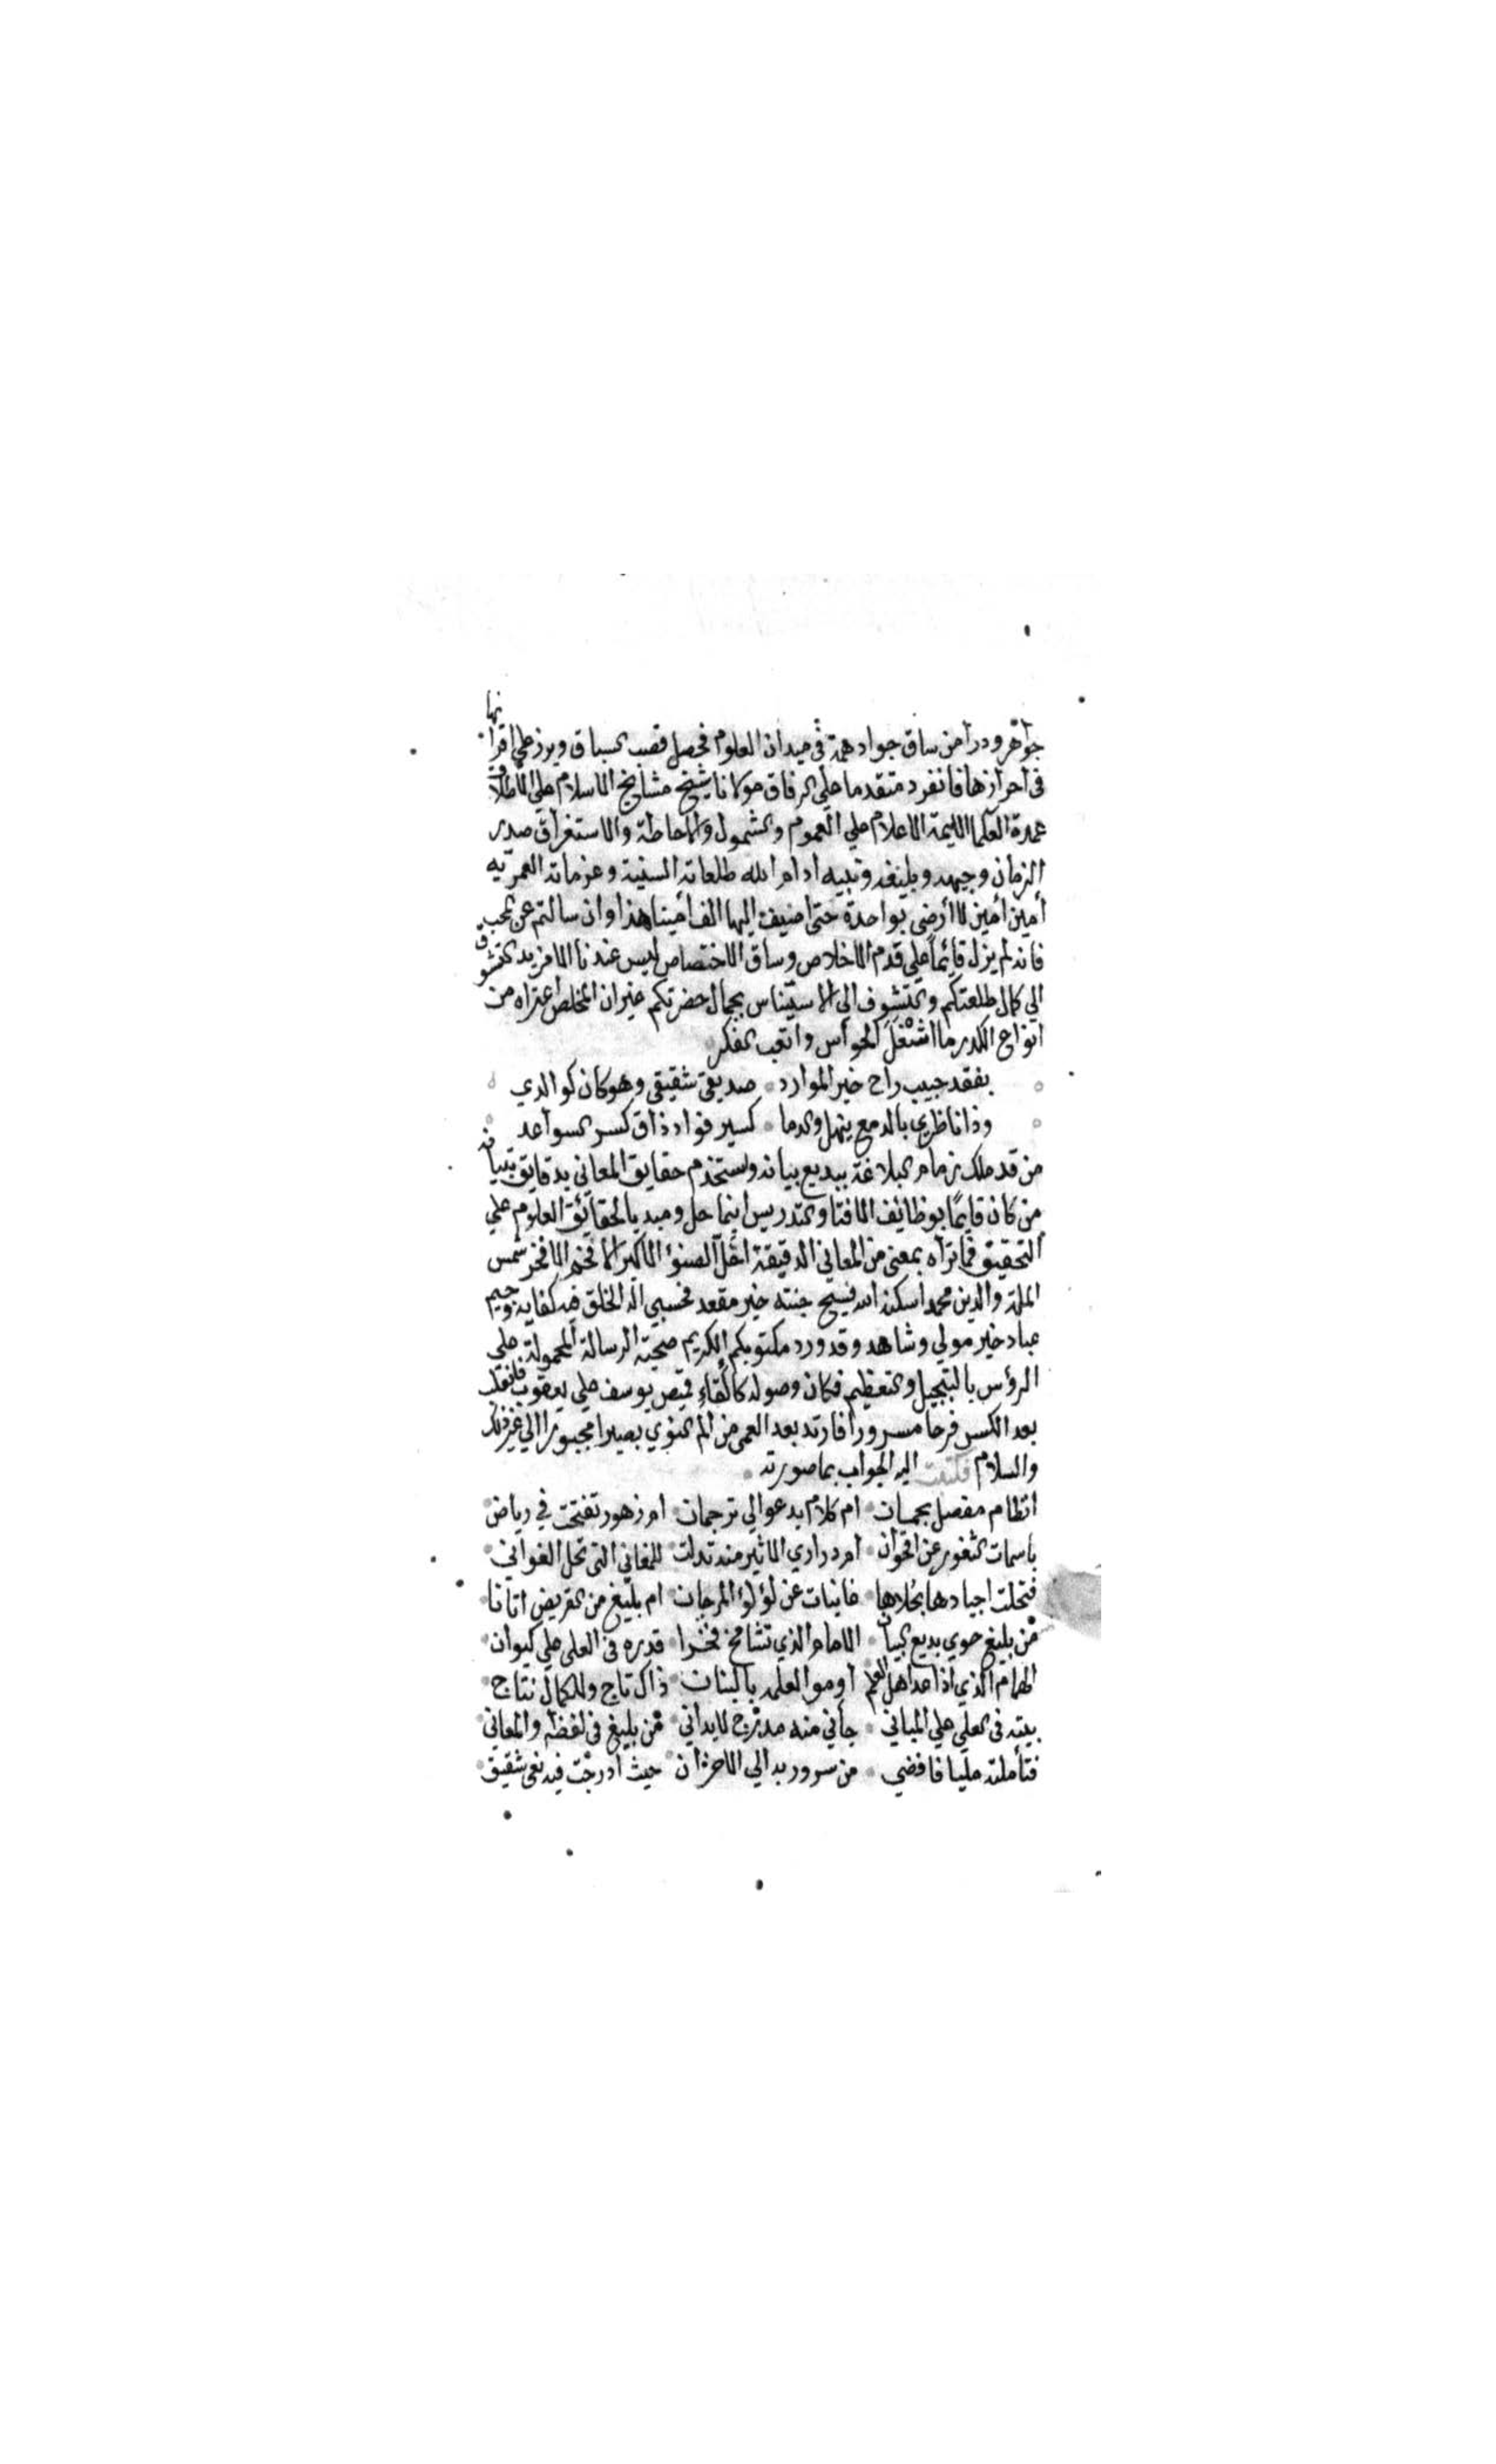 جواهر ودرا من ساق جواد همته في ميدان العلوم فحصل قصب السباق وبرز علي اقرانها
في احرازها فانفرد متقدما علي الرفاق مولانا شيخ مشايخ الاسلام علي الاطلاق
عمدة العلما الايمة الاعلام علي العموم والشمول والاحاطة والاستغراق صدر
الزمان وجيهه وبليغه ونبيه ادام الله طلعاته السنية وعزماته العمريه
أمين أمين لا أرضي بواحدة حتى اضيف اليها الف أمينا هذا وان سالتم عن المحب
فانه لم يزل قائماً علي قدم الاخلاص وساق الاختصاص ليس عندنا الا مزيد التشوق
الي كمال طلعتكم والتشوف الي الاستيناس بجمال حضرتكم غير ان المخلص اعتراه من
انواع الكدر ما اشتغل الحواس واتعب الفكر
بفقد حبيب راح خير الموارد صديقي شقيقي وهو كان كوالدي
وذا ناظري بالدمع ينهل والدما كسير فواد ذاق كسر السواعد
من قد ملك زمام البلاغة ببديع بيانه واستخدم حقايق المعاني بدقايق تبيانه
من كان قايمًا بوظائف الافتا والتدريس اينما حل ومبديا لحقائق العلوم علي
التحقيق فما تراه بمعنى من المعاني الدقيقة اخل الصنو الاكبر الافخم الافخر شمس
الملة والدين محمد اسكنه الله فسيح جنته خير مقعد فحسبي اله الخلق فيه كفاية وجيم
عباد خير مولي وشاهد وقد ورد مكتوبكم الكريم صحبة الرسالة المحمولة علي
الرؤس بالتبجيل والتعظيم فكان وصوله كالقاء قميص يوسف علي يعقوب فانقلب
بعد الكسر فرحا مسرورا فارتد بعد العمى من الم النوي بصيرا مجبورا الي غير ذلك
والسلام فكتبت اليه الجواب بما صورته
انظام مفصل بجمان ام كلام يدعو الي ترجمان ام زهور تفتحت في رياض
باسمات الثغور عن اقحوان ام دراري الاثير منه تدلت للمغاني التي تحل الغواني
فتحلت اجيادها بحلاها غانيات عن لؤلؤ المرجان ام بليغ من القريض اتانا
من بليغ حوي بديع البيان الامام الذي تشامخ فخرا قدره في العلى علي كيوان
الهمام الذي اذا عد اهل العلم أوموا لعلمه بالبنان ذاك تاج وللكمال نتاج
بيته في العلى علي المباني جاني منه مدرج لا يداني من بليغ في لفظه والمعاني
فتأملته مليا فافضي من سرور به الي الاحزان حيث ادرجت فيه نعى شقيق